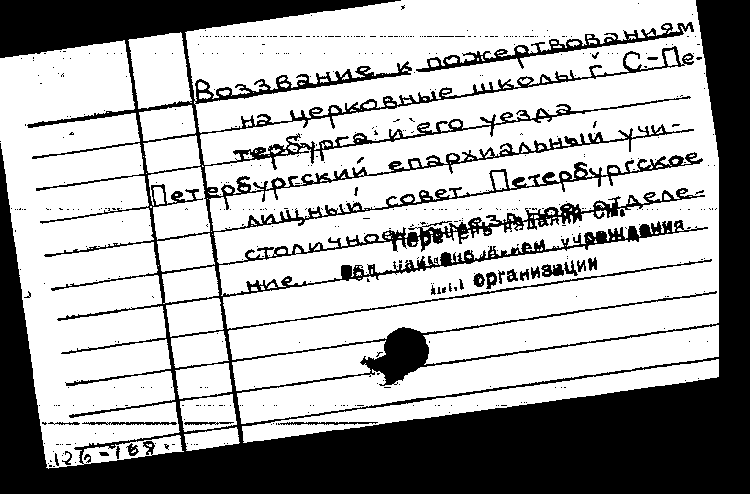 Воззвание к пожертвованиям
на церковные школы г. С.-Пе-
тербурга и его уезда.
Петербургский епархиальный учи-
лищный совет. Петербургское
столичное и уездное отделе-
ние.
Перечень изданий см.
под наименованием учреждения
или организации
126-768